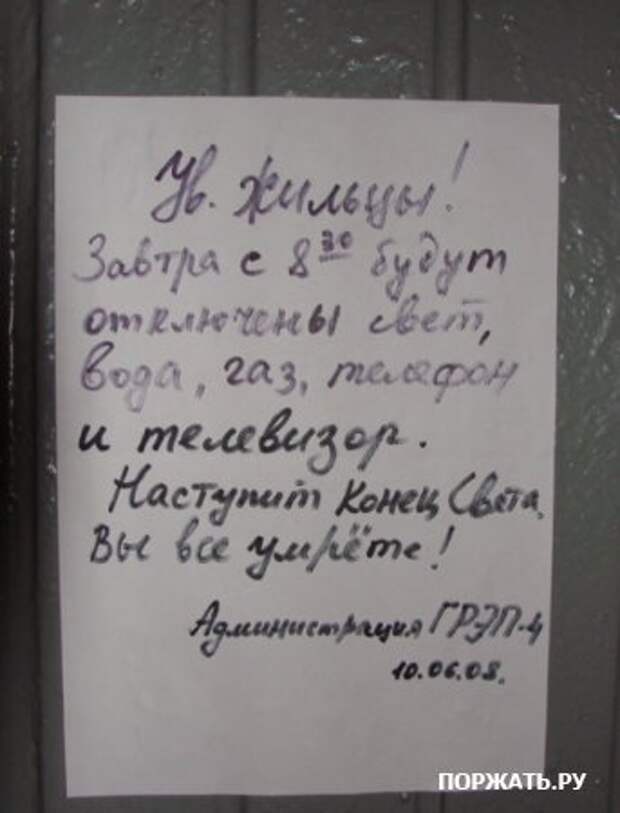 Ув. жильцы!
Завтра с 8³⁰ будут
отключены свет,
вода, газ, телефон
и телевизор.
Наступит Конец Света.
Вы все умрёте!
Администрация ГРЭП-4
10.06.08.
ПОРЖАТЬ.РУ